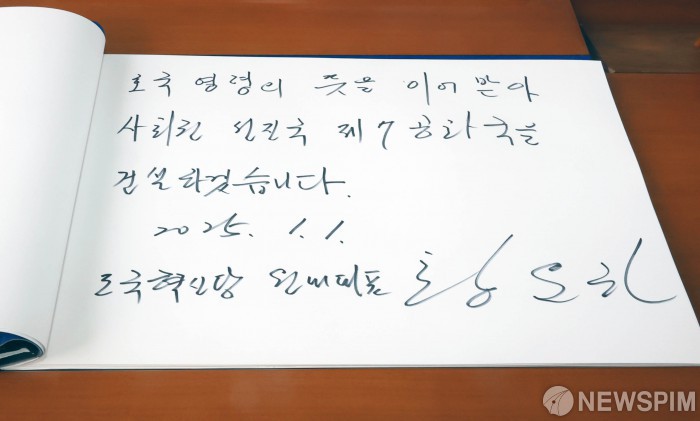 호국 영령의 뜻을 이어 받아
사회권 선진국 제7공화국을
건설하겠습니다.
2025. 1. 1.
조국혁신당 원내대표 황운하
NEWSPIM